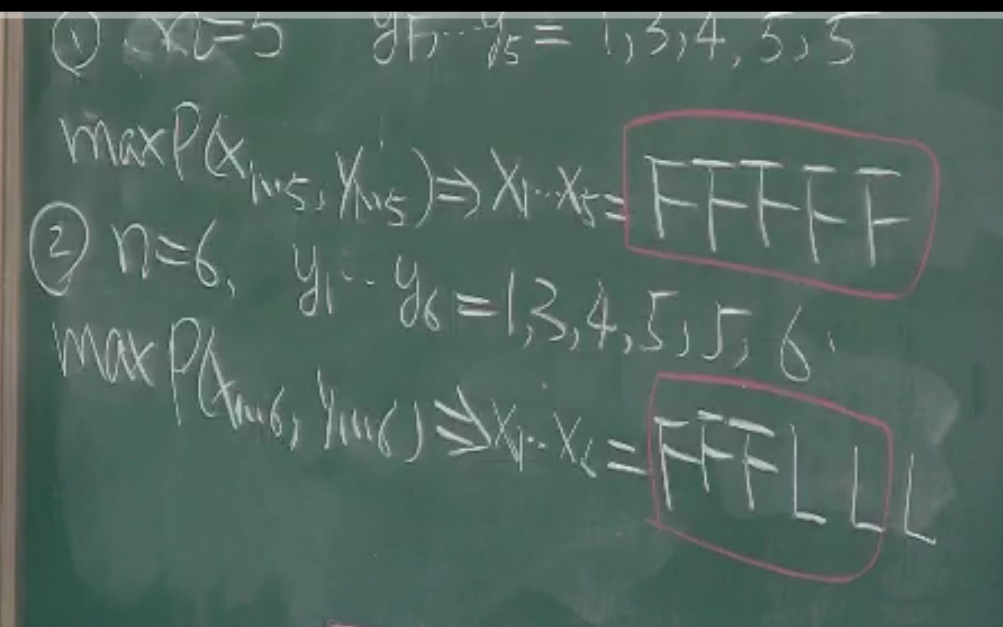 ① n=5 y₁,...y₅ = 1,3,4,5,5
maxP(x₁...₅, y₁...₅) ⇒ x₁...x₅ = FFFFF
② n=6, y₁...y₆ = 1,3,4,5,5,6.
maxP(x₁...₆, y₁...₆) ⇒ x₁...x₆ = FFFLLL